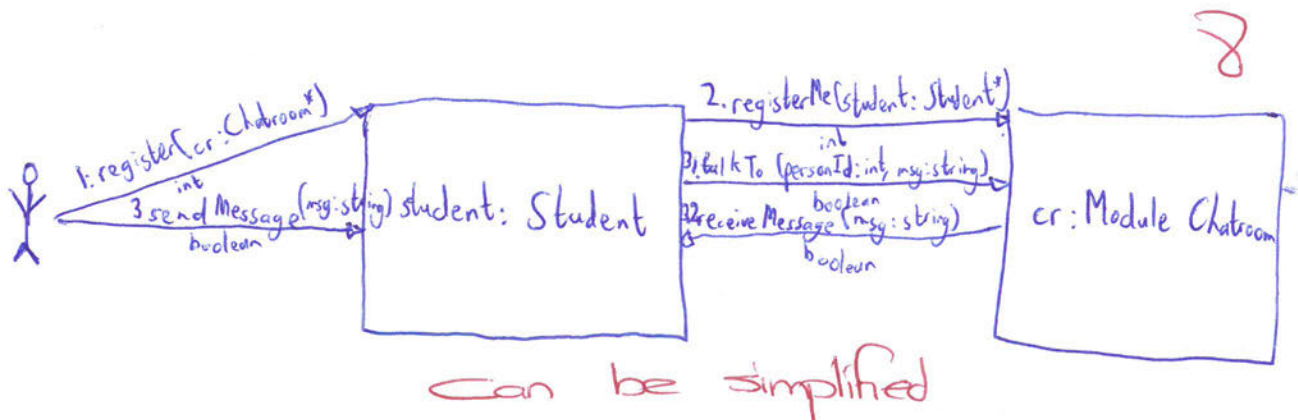 8
1: register(cr: Chatroom*)
int
3 sendMessage(msg: string)
boolean
student: Student
2. registerMe(student: Student*)
int
3.1 talkTo (personId: int, msg: string)
boolean
3.2 receiveMessage(msg: string)
boolean
cr: Module Chatroom
can be simplified